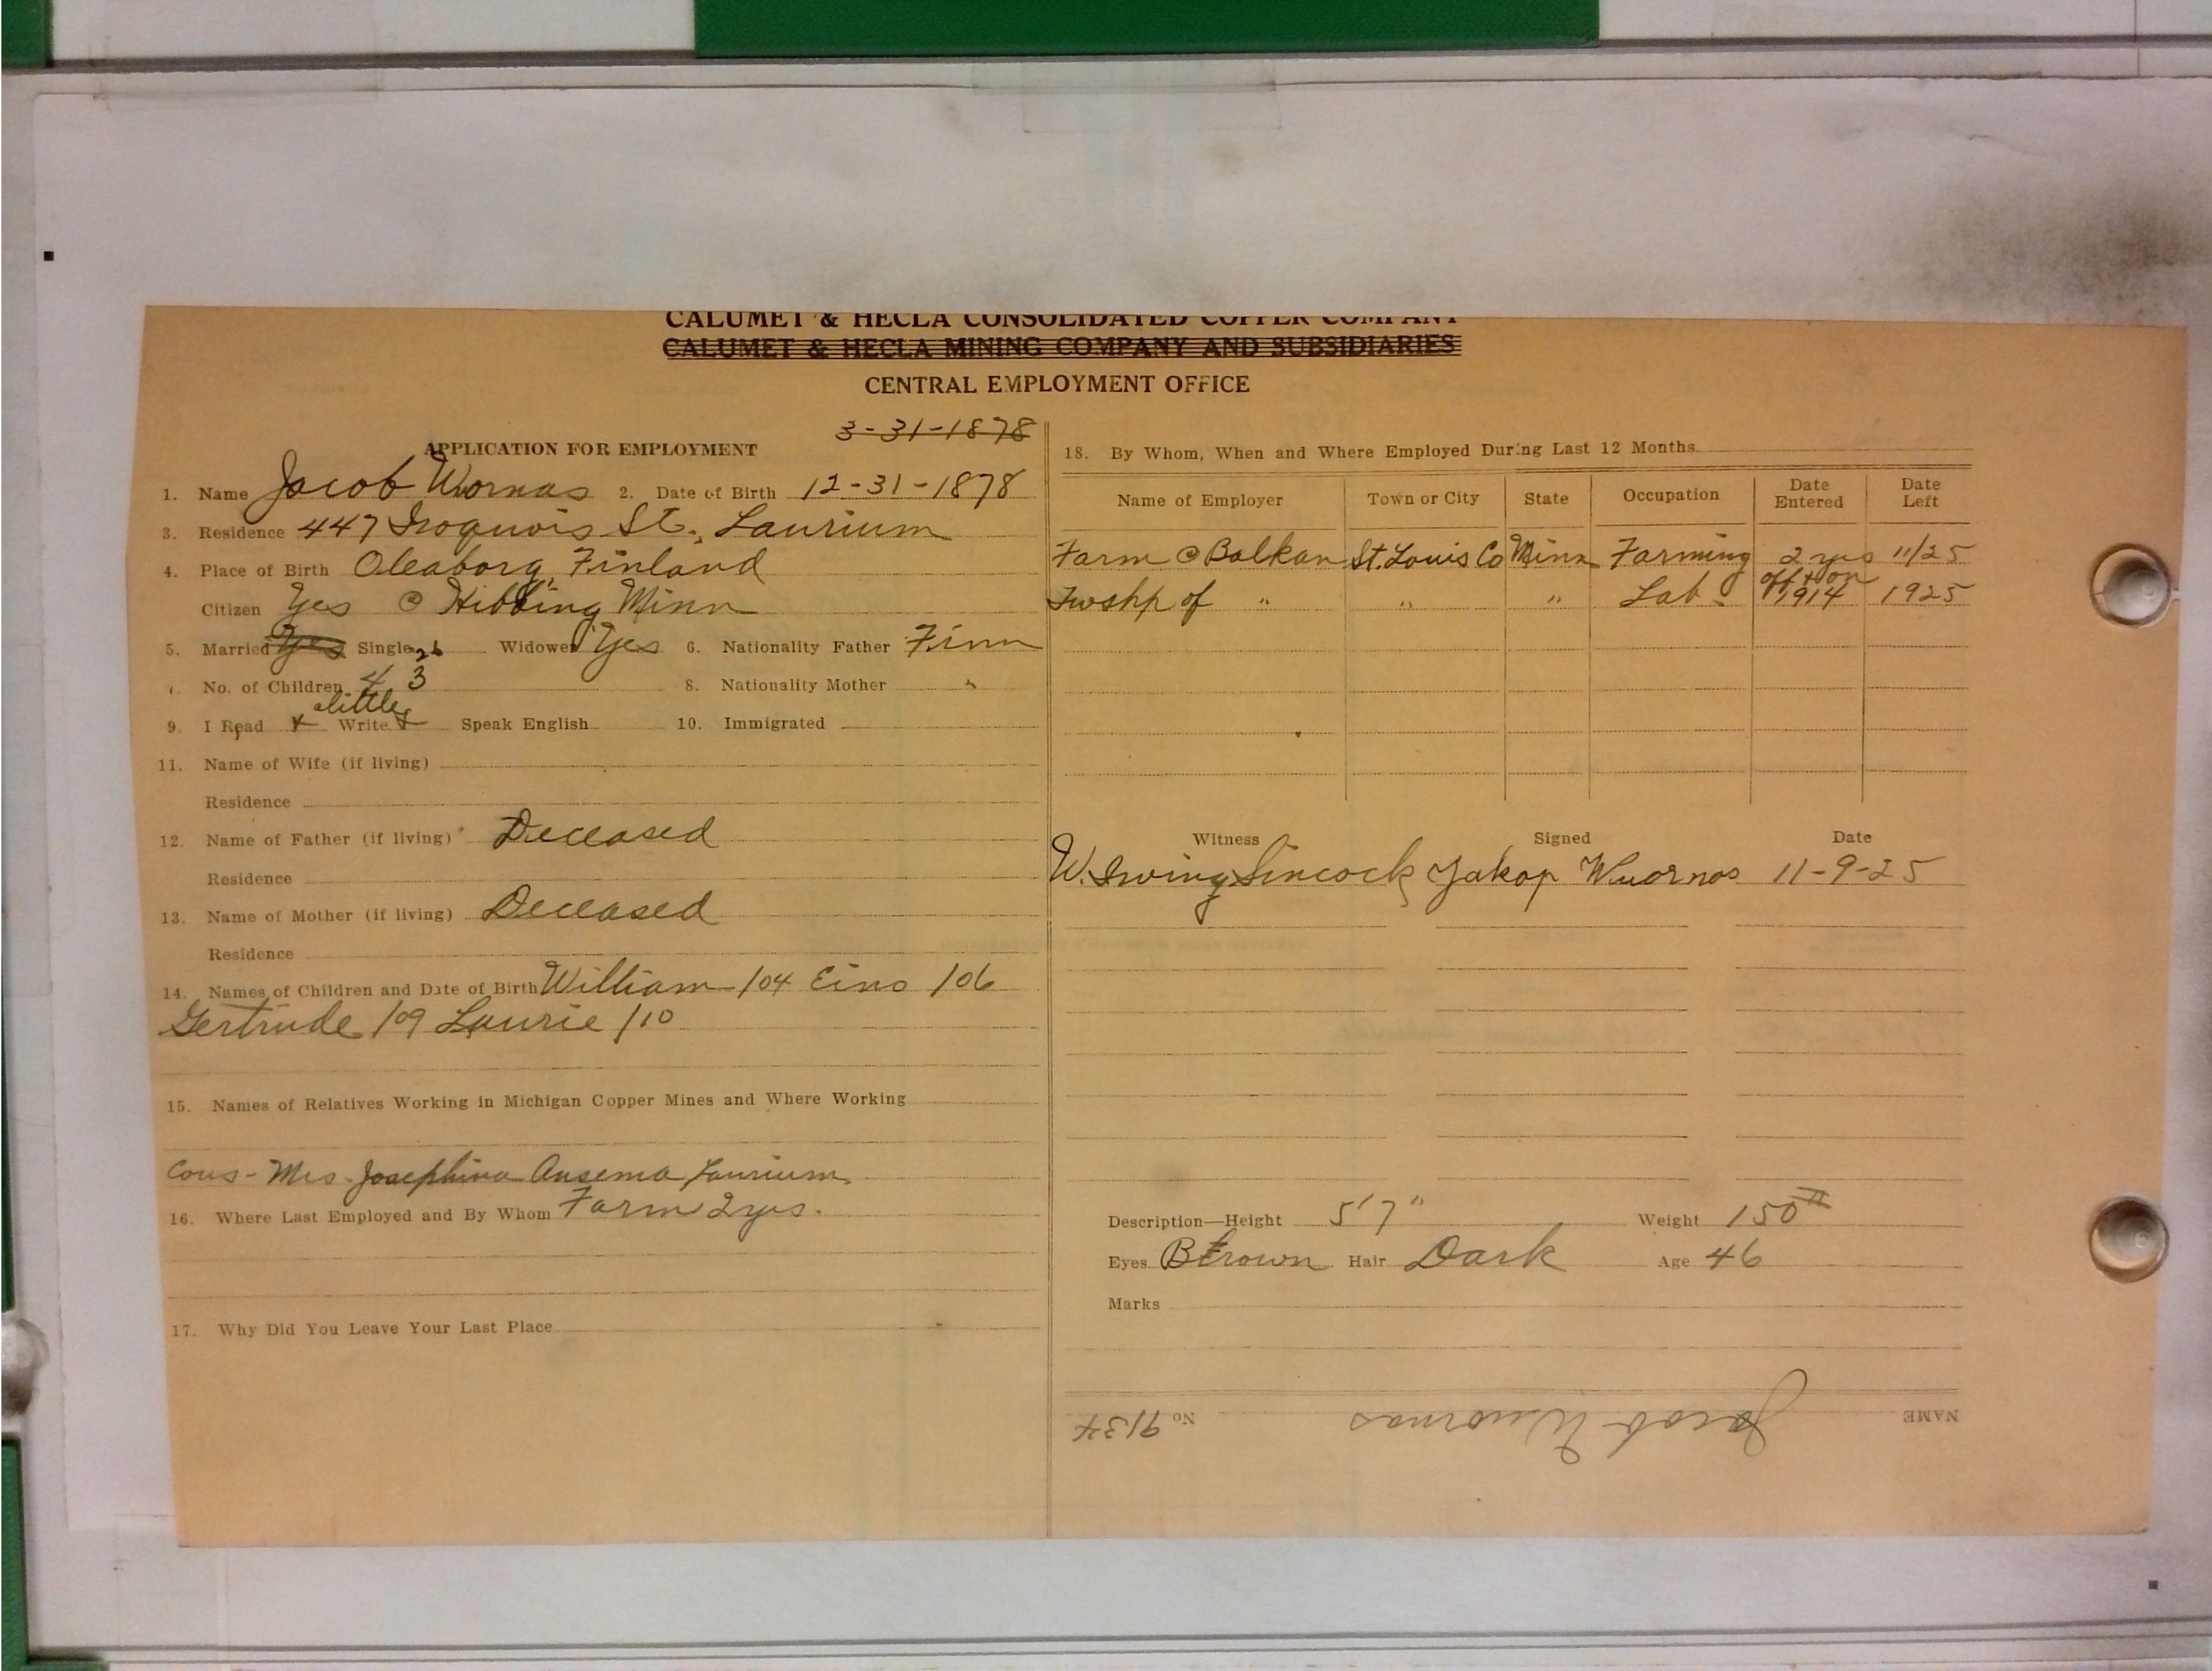 CALUMET & HECLA CONSOLIDATED COPPER COMPANY
CALUMET & HECLA MINING COMPANY AND SUBSIDIARIES
CENTRAL EMPLOYMENT OFFICE
3-31-1878
APPLICATION FOR EMPLOYMENT
1. Name Jacob Wornas 2. Date of Birth 12-31-1878
3. Residence 447 Iroquois St., Laurium
4. Place of Birth Oleaborg, Finland
Citizen Yes @ Hibbing Minn
5. Married Yes Single Widower Yes 6. Nationality Father Finn
No. of Children 4 3 8. Nationality Mother "
a little
9. I Read x Write x Speak English 10. Immigrated
11. Name of Wife (if living)
Residence
12. Name of Father (if living) Deceased
Residence
13. Name of Mother (if living) Deceased
Residence
14. Names of Children and Date of Birth William /04 Eino /06
Gertrude /09 Laurie /10
15. Names of Relatives Working in Michigan Copper Mines and Where Working
Cous - Mrs. Josephina Ansema, Laurium
16. Where Last Employed and By Whom Farm 2 yrs.
17. Why Did You Leave Your Last Place
18. By Whom, When and Where Employed During Last 12 Months
Name of Employer Town or City State Occupation Date Entered Date Left
Farm @ Balkan St. Louis Co Minn Farming 2 yrs 11/25
off & on
Twshp of " " " Lab. 1914 1925
Witness Signed Date
W. Irving Sincock Jakop Wuornos 11-9-25
Description—Height 5'7" Weight 150#
Eyes Brown Hair Dark Age 46
Marks
NAME Jacob Wuornas No 9134